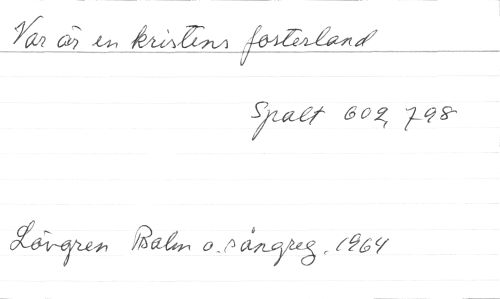 Var är en kristens fosterland
Spalt 602, 798
Lövgren Psalm o. sångreg. 1964